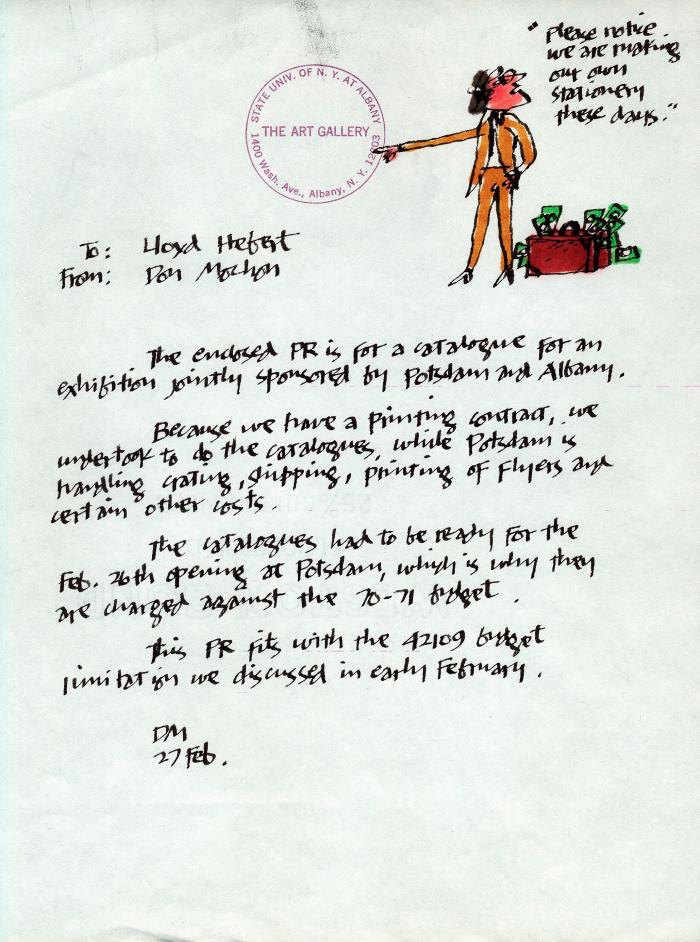 "Please notice
we are making
our own
stationery
these days."
STATE UNIV. OF N. Y. AT ALBANY
THE ART GALLERY
1400 Wash. Ave., Albany, N. Y. 12203
To: Lloyd Hebert
From: Don Mochon
The enclosed PR is for a catalogue for an
exhibition jointly sponsored by Potsdam and Albany.
Because we have a printing contract, we
undertook to do the catalogues, while Potsdam is
handling crating, shipping, printing of flyers and
certain other costs.
The catalogues had to be ready for the
Feb. 26th opening at Potsdam, which is why they
are charged against the 70-71 budget.
This PR fits with the 42109 budget
limitation we discussed in early February.
DM
27 Feb.